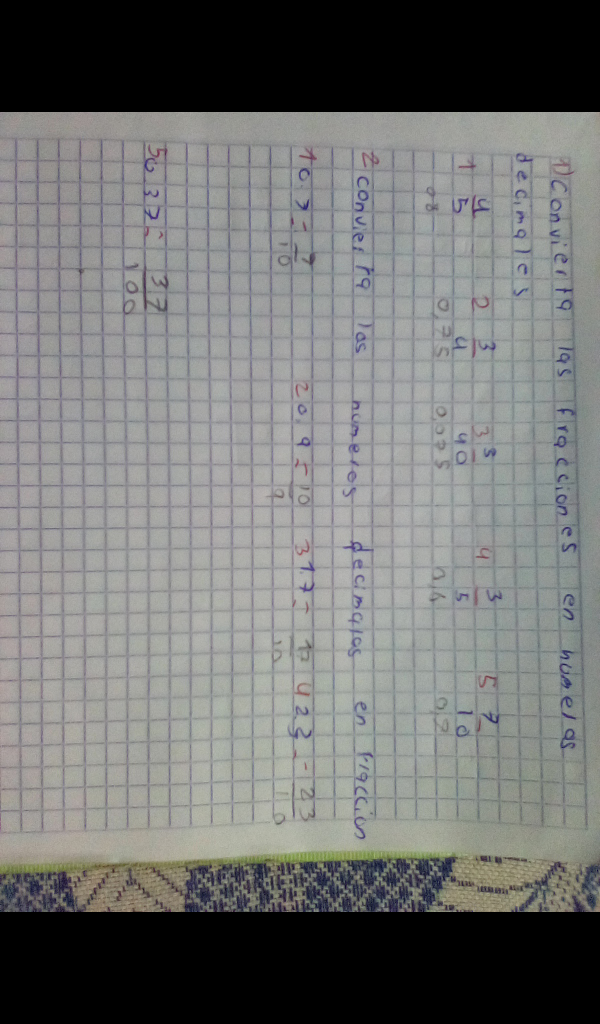 1) Convierta las fracciones en numeros
decimales
1 4/5 2 3/4 3 3/40 4 3/5 5 7/10
08 0,75 0,075 0,6 0,7
2 convierta los numeros decimales en fraccion
1 0.7 = 7/10 2 0.9 = 10/9 3 1.7 = 17/10 4 2.3 = 23/10
5 0.37 = 37/100